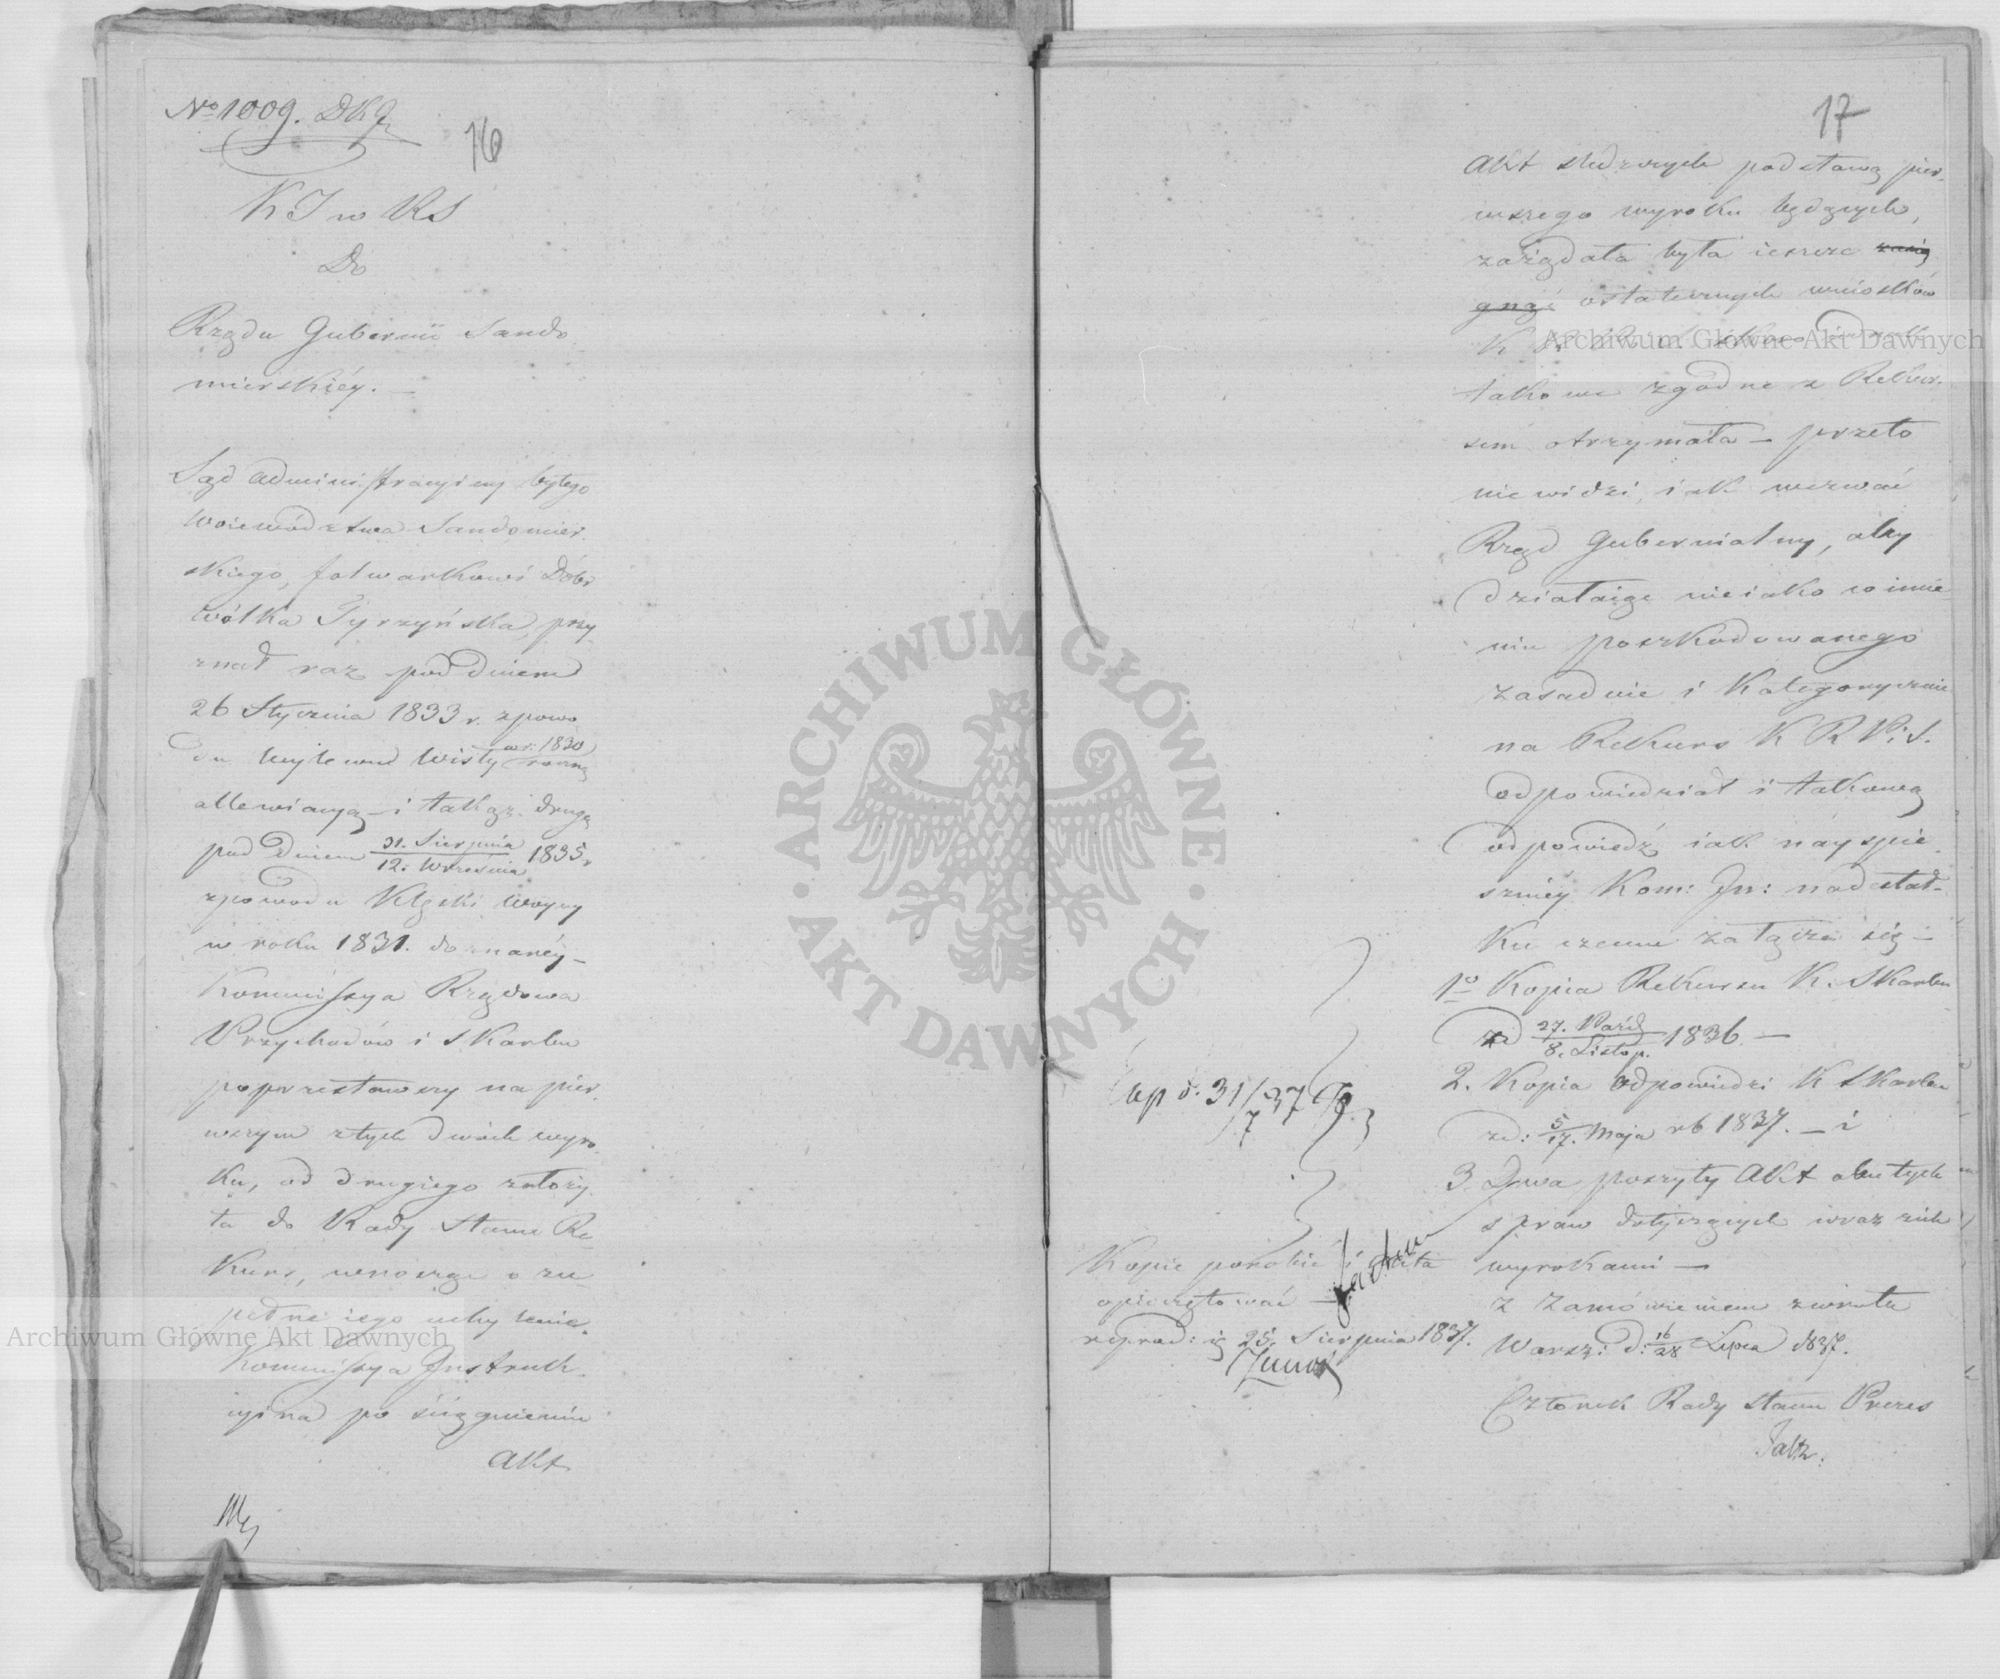 No 1009. DKJ
16
K J w RS
Do
Rządu Gubernii Sando
mierskiéy. —
Sąd administracyiny byłego
Woiewództwa Sandomier.
skiego, folwarkowi Dóbr
Wólka Tyrzyńska, przy
znał raz pod dniem
26 Stycznia 1833 r. zpowo
du wylewu Wisły w r: 1830
allewiacyą — i takąż drugą
pod dniem 31. Sierpnia / 12. Września 1835 r
zpowodu klęski woyny
w roku 1831. doznanéy —
Kommissya Rządowa
Przychodów i Skarbu
poprzestawszy na pier.
wszym ztych dwóch wyro.
ku, od drugiego złoży.
ła do Rady Stanu Re
kurs, wnosząc o zu
pełne iego uchylenie.
Kommissya Instruk.
cyina po ściągnieniu
Akt
17
Akt służących podstawą pier.
wszego wyroku będących,
zażądała była ieszcze zacią
gnąć ostatecznych wniosków
takowe zgodne z Rekur.
sem otrzymała — przeto
niewidzi, iak wezwać
Rząd Gubernialny, aby
działaiąc nieiako w imie
niu poszkodowanego
zasadnie i kategorycznie
na Rekurs K R P. i S.
odpowiedział i takową
odpowiedź iak náyspie.
szniéy Kom: In: nadesłał —
Ku czemu załącza się —
1o Kopia Rekursu K. Skarbu
zd 27. Paźd / 8. Listop. 1836. —
2. Kopia odpowiedzi K Skarbu
zd: 5/17. Maja rb 1837. — i
3. Dwa poszyty Akt obu tych
spraw dotyczących wraz zich
wyrokami —
z Zamówieniem zwrotu
Warsz: d: 16/28 Lipca 1837.
Członek Rady Stanu Prezes
Exp d. 31/7 37
Kopie porobić i Akta
opieczętować —
25. Sierpnia 1837.
Archiwum Główne Akt Dawnych
Archiwum Główne Akt Dawnych
ARCHIWUM GŁÓWNE AKT DAWNYCH